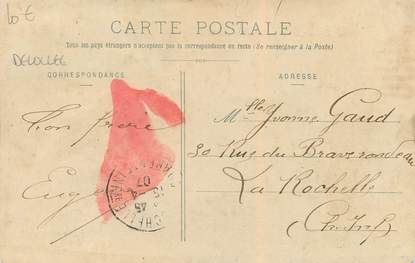 10 €
DECOLLEE
CARTE POSTALE
Tous les pays étrangers n'acceptent pas la correspondance au recto (Se renseigner à la Poste)
CORRESPONDANCE
ADRESSE
Ton frère
Eug
Mlle Yvonne Gaud
30 Rue du Brave rondeau
La Rochelle
(Ch. Inf.)
07
45